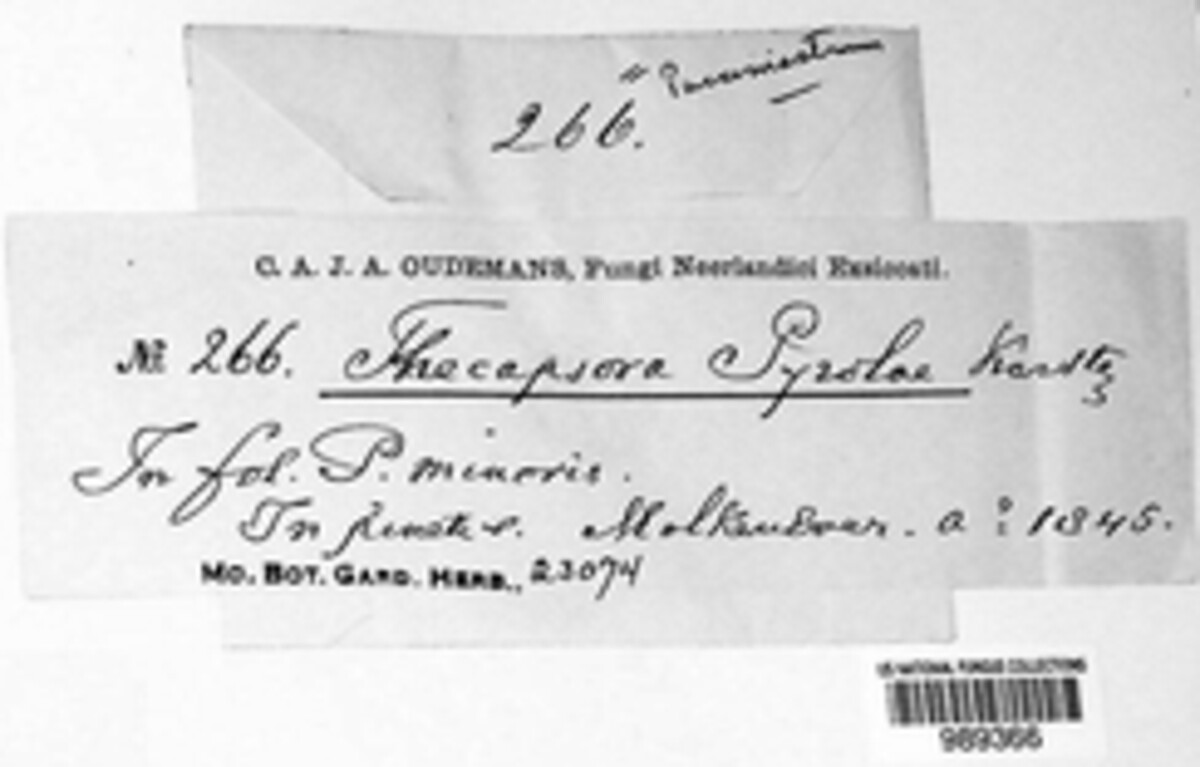 266.
" Pucciniastrum
C. A. J. A. OUDEMANS, Fungi Neerlandici Exsiccati.
№ 266. Thecapsora Pyrolae Karst
In fol. P. minoris.
In pinet. v. Molkenboer. a° 1845.
MO. BOT. GARD. HERB., 23074
US NATIONAL FUNGUS COLLECTIONS
989366